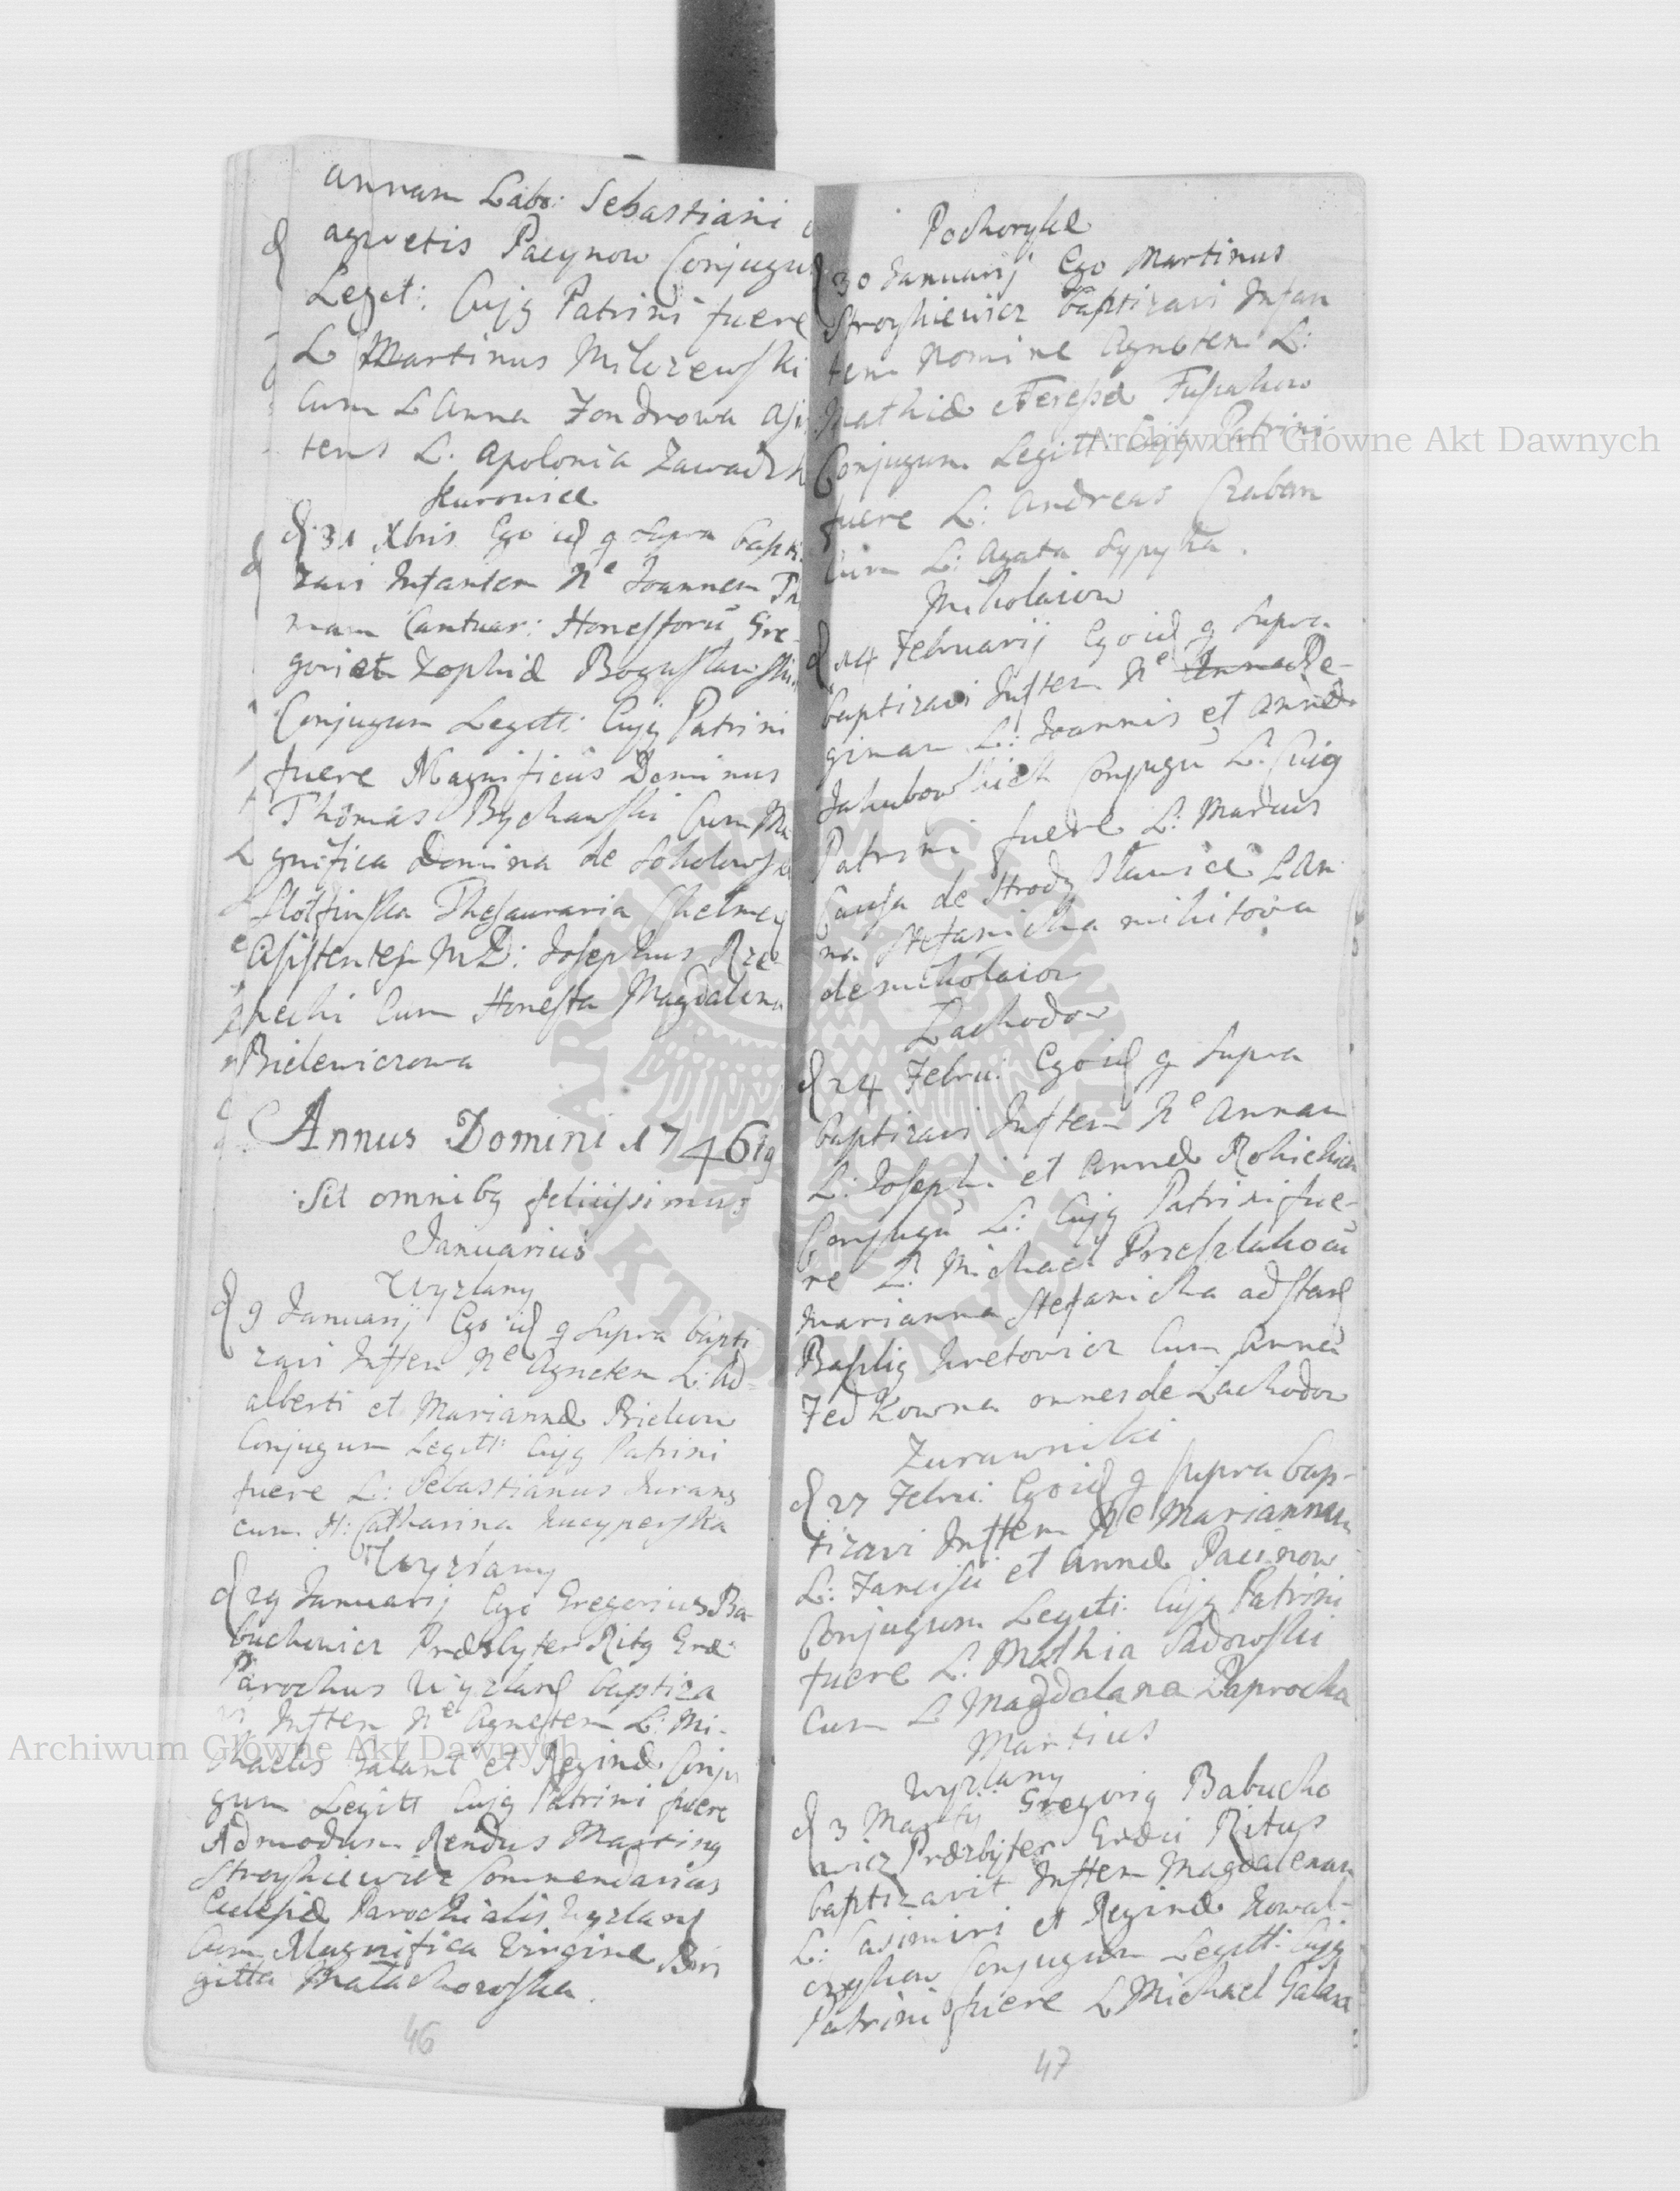 annam Labo: Sebastiani
agnetis Pacynow Conjugu
Legit: Cujg Patrini fuere
L Martinus Milczewski
Cum L Anna Fondrowa Asi
tens L. Apolonia Zawadzk
Kurowice
d 31 Xbris Ego id q Supra bapti
zavi Infantem Ne Joannem
mam Cantuar: Honestorū Gre-
gori et Zophiæ Bogusławski
Conjugum Legitt: Cujg Patrini
fuere Magnificus Dominus
Thomas Bychawski Cum Ma
gnifica Domina de
Thesauraria Chelmen
Asistentes M D: Josephus Rze
pecki Cum Honesta Magdalena
Bielewiczowa
Annus Domini 1746tg
Sit omnibg felicissimus
Januarius
Uyzlany
d 9 Januarij Ego id q Supra bapti
zavi Inften Ne Agnetem L: Ad-
alberti et Mariannæ Bielow
Conjugum Legitt: Cujg Patrini
fuere L: Sebastianus
cum H: Catharina
Uyzlany
d 29 Januarij Ego Gregorius Ba-
buchowicz Præsbyter Ritg Græ:
Parochus Uyzlanſ baptiza
vi Inften Ne Agnetem L: Mi-
chaelis Galant et Reginæ Conju
gum Legitt Cujg Patrini fuere
Admodum Rendus Marting
Stroykiewicz Commendarius
Eclesiæ Parochialis Uyzlanſ
Cum Magnifica Virgine Bri
gitta Małachowska.
46
Podhorylce
d 30 Januarij Ego Martinus
Stroykiewicz baptizavi Infan
tem Nomine Agnetem L:
Mathiæ et Teresæ
Conjugum Legitt: Cujg Patrini
fuere L: Andreas Czaban
Cum L: Agata Sypyka.
Mikolaiow
d 14 Februarij Ego id q Supra
baptizavi Inften Ne Anna Re-
ginam L: Joannis et Annæ
Jakubowskich Conjugū L: Cuig
Patrini fuere L: Marcus
de L An
na Stefanicha
de mikolaiow
Lachodow
d 24 Febru: Ego id q Supra
baptizavi Inften Ne Annam
L: Josephi et Annæ
Conjugū L: Cujg Patrini fue-
re L: Michael
Marianna Stefanicha adstanſ
Basilig Cum Anna
Fedkowna omnes de Lachodow
Zurawniki
d 27 Febru: Ego id q Supra bap-
tizavi Inften Ne Mariannam
L: Fancisci et Annæ Pacinow
Conjugum Legitt: Cujg Patrini
fuere L: Mathia Sadowski
Cum L Magdalena Paprocka
Martius
Uyzlany
d 3 Martij Gregorig Babucho
wicz Præzbyter Græci Ritus
baptizavit Inften Magdalenam
L: Casimiri et Reginæ Kowal-
czykow Conjugum Legitt: Cujg
Patrini fuere L Michael Galant
47
Archiwum Główne Akt Dawnych
Archiwum Główne Akt Dawnych
ARCHIWUM GŁÓWNE AKT DAWNYCH